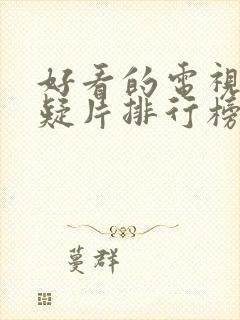 好看的電視
疑片排行榜
蔓群